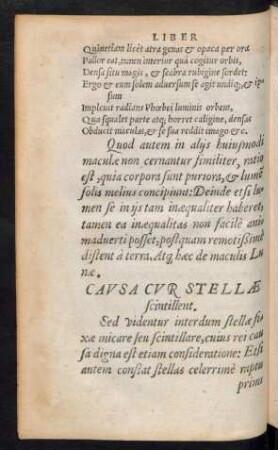 LIBER
Quinetiam licèt atra genas & opaca per ora
Pallor eat, tamen interior quà cogitur orbis,
Densa situ magis, & scabra rubigine sordet:
Ergo & eum solem aduersum se agit undiq;, & ipsum
Impleuit radians Phœbei luminis orbem,
Qua squalet parte atq; horret caligine, densas
Obducit maculas, & se sua reddit imago &c.
Quod autem in alijs huiusmodi
maculæ non cernantur similiter, ratio
est, quia corpora sunt puriora, & lumẽ
solis melius concipiunt: Deinde etsi lu-
men se in ijs tam inæqualiter haberet,
tamen ea inæqualitas non facilè anim
maduerti posset, postquam remotissimè
distent à terra. Atq; hæc de maculis Lu
næ.
CAVSA CVR STELLÆ
scintillent.
Sed videntur interdum stellæ fi-
xæ micare seu scintillare, cuius rei cau
sa digna est etiam consideratione: Etsi
autem constat stellas celerrimè raptu
primi